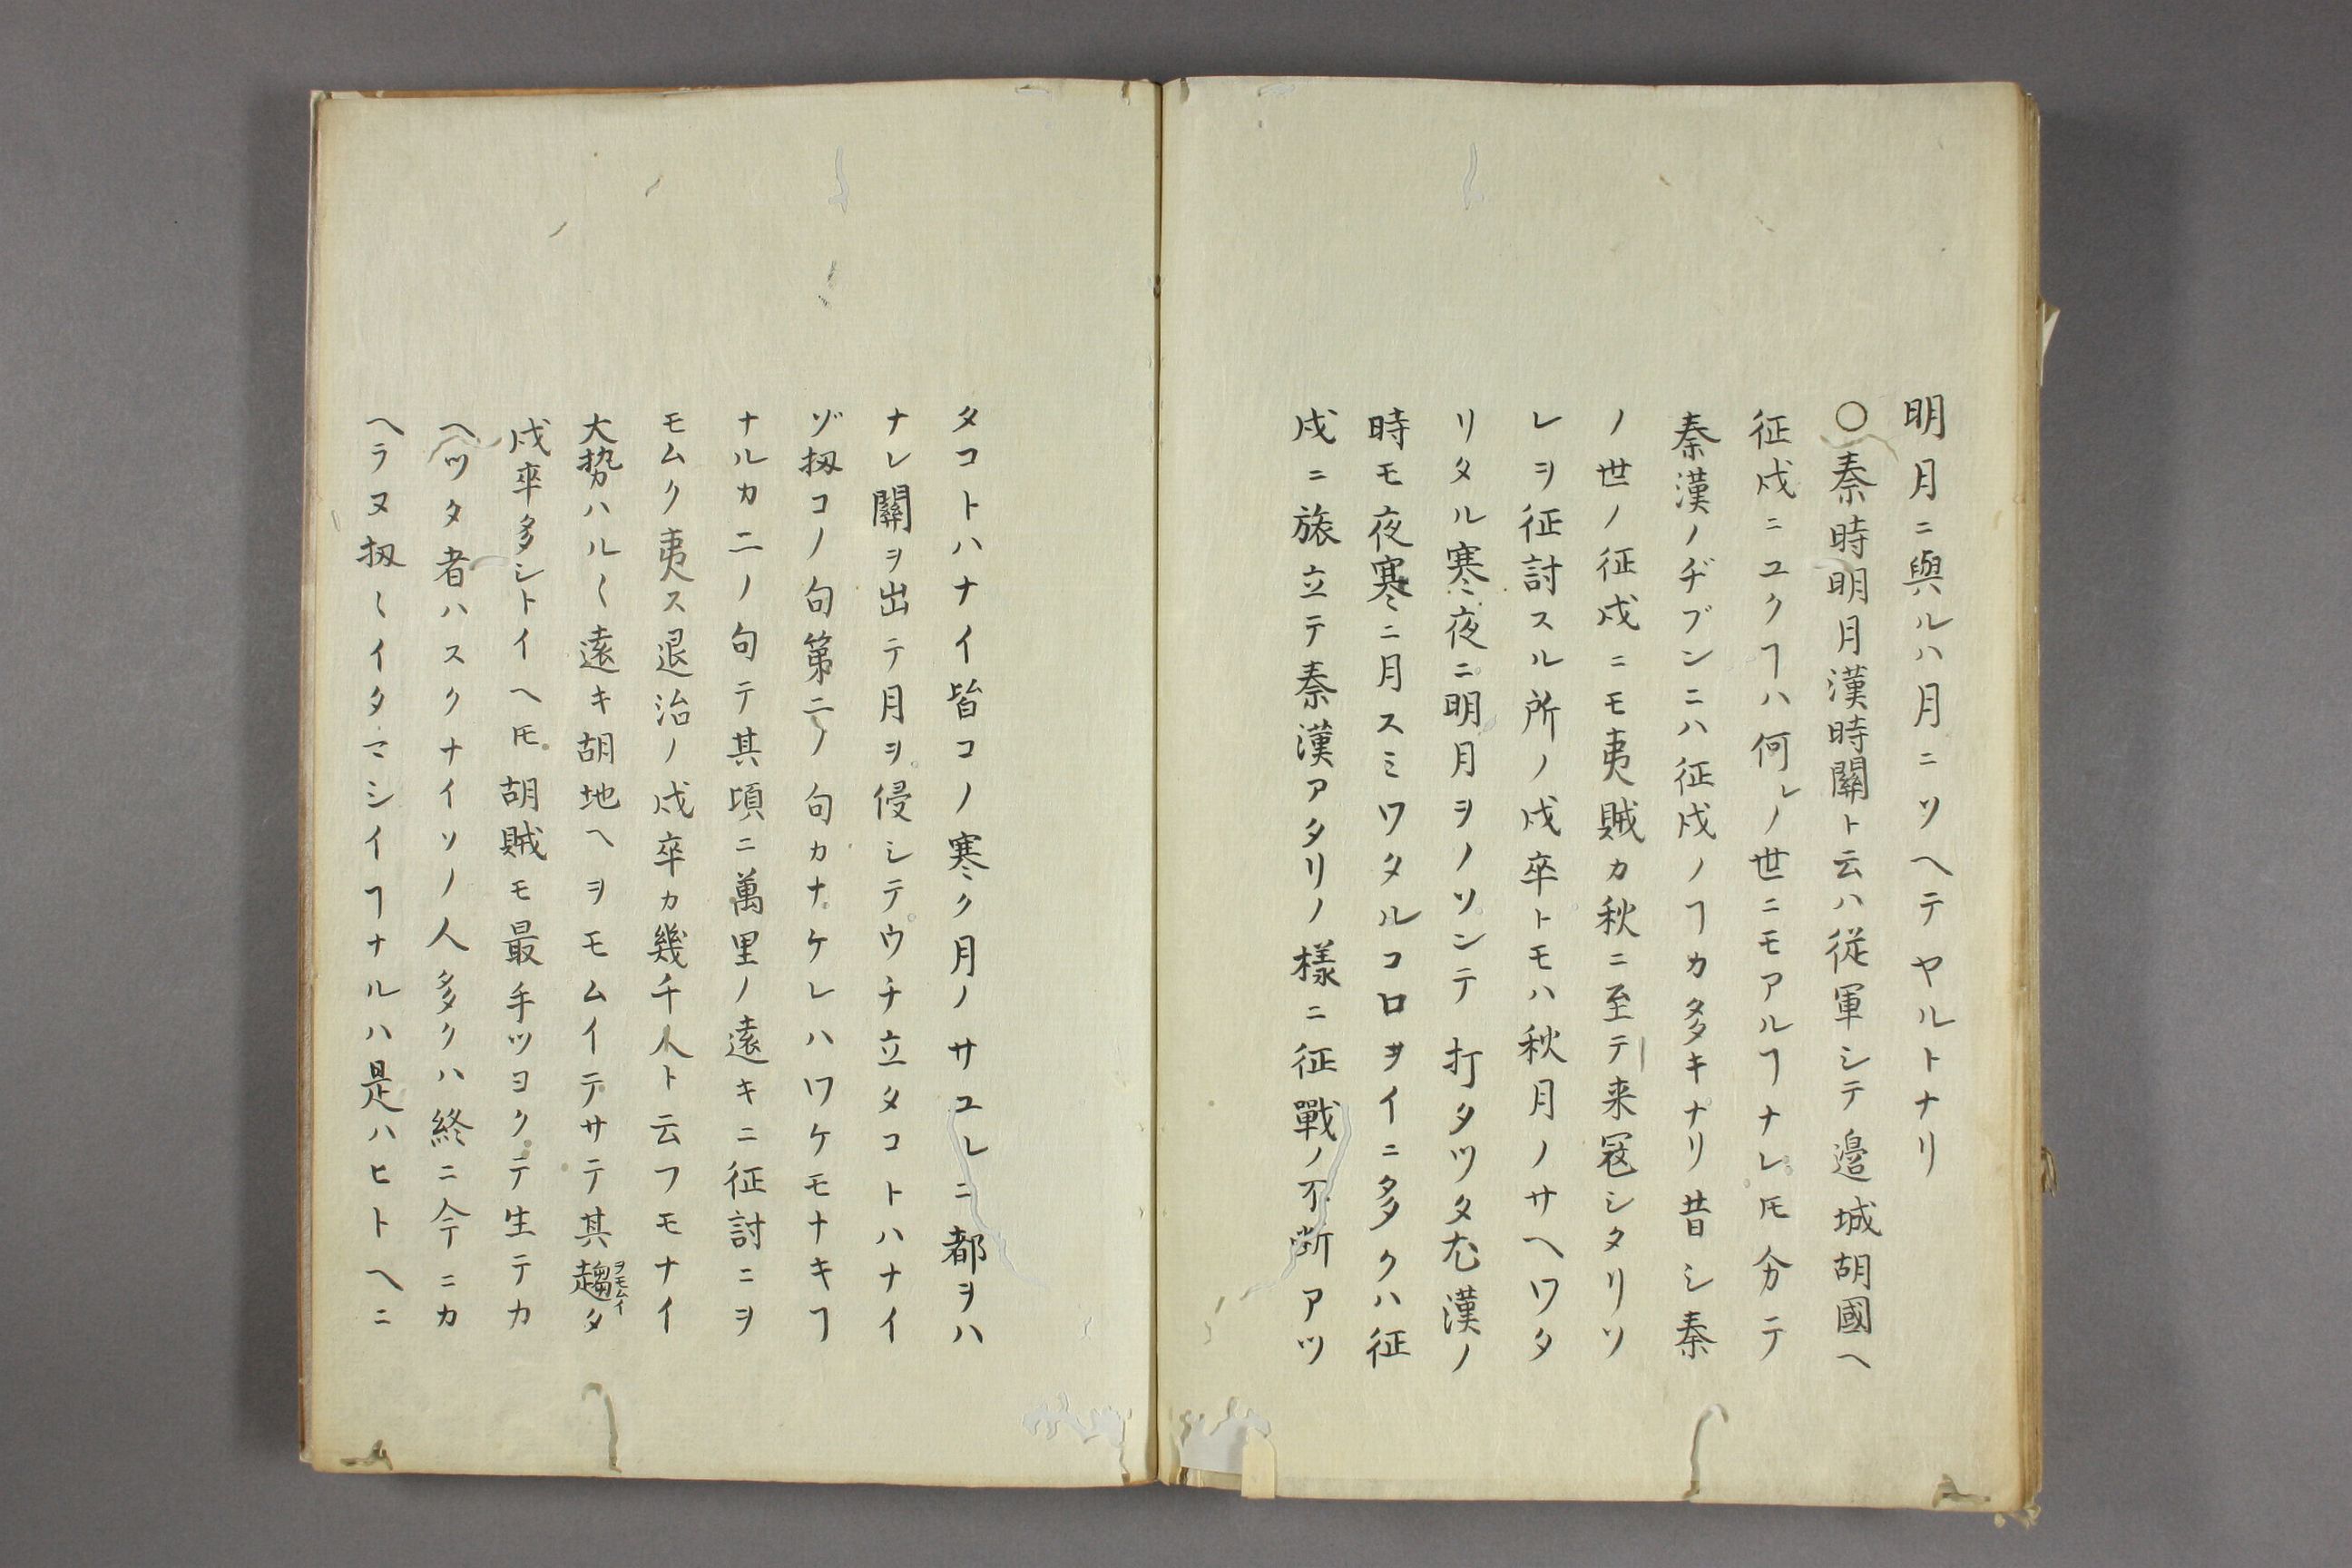 明月ニ與ルハ月ニソヘテヤルトナリ
〇秦時明月漢時關ト云ハ従軍シテ邉城胡國ヘ
征戍ニユクヿハ何レノ世ニモアルヿナレ𪜈分テ
秦漢ノヂブンニハ征戍ノヿカ多キナリ昔シ秦
ノ世ノ征戍ニモ夷賊カ秋ニ至テ来冦シタリソ
レヲ征討スル所ノ戍卒トモハ秋月ノサヘワタ
リタル寒夜ニ明月ヲノソンテ打タツタ尤漢ノ
時モ夜寒ニ月スミワタルコロヲイニ多クハ征
戍ニ旅立テ秦漢アタリノ様ニ征戰ノ不断アツ
タコトハナイ皆コノ寒ク月ノサユレニ都ヲハ
ナレ關ヲ出テ月ヲ侵シテウチ立タコトハナイ
ゾ扨コノ句第二ノ句カナケレハワケモナキヿ
ナルカ二ノ句テ其頃ニ萬里ノ遠キニ征討ニヲ
モムク夷ス退治ノ戍卒カ幾千人ト云フモナイ
大勢ハル〱遠キ胡地ヘヲモムイテサテ其趨ヲモムイタ
戍卒多シトイヘ𪜈胡賊モ最手ツヨクテ生テカ
ヘツタ者ハスクナイソノ人多クハ終ニ今ニカ
ヘラヌ扨〱イタマシイヿナルハ是ハヒトヘニ